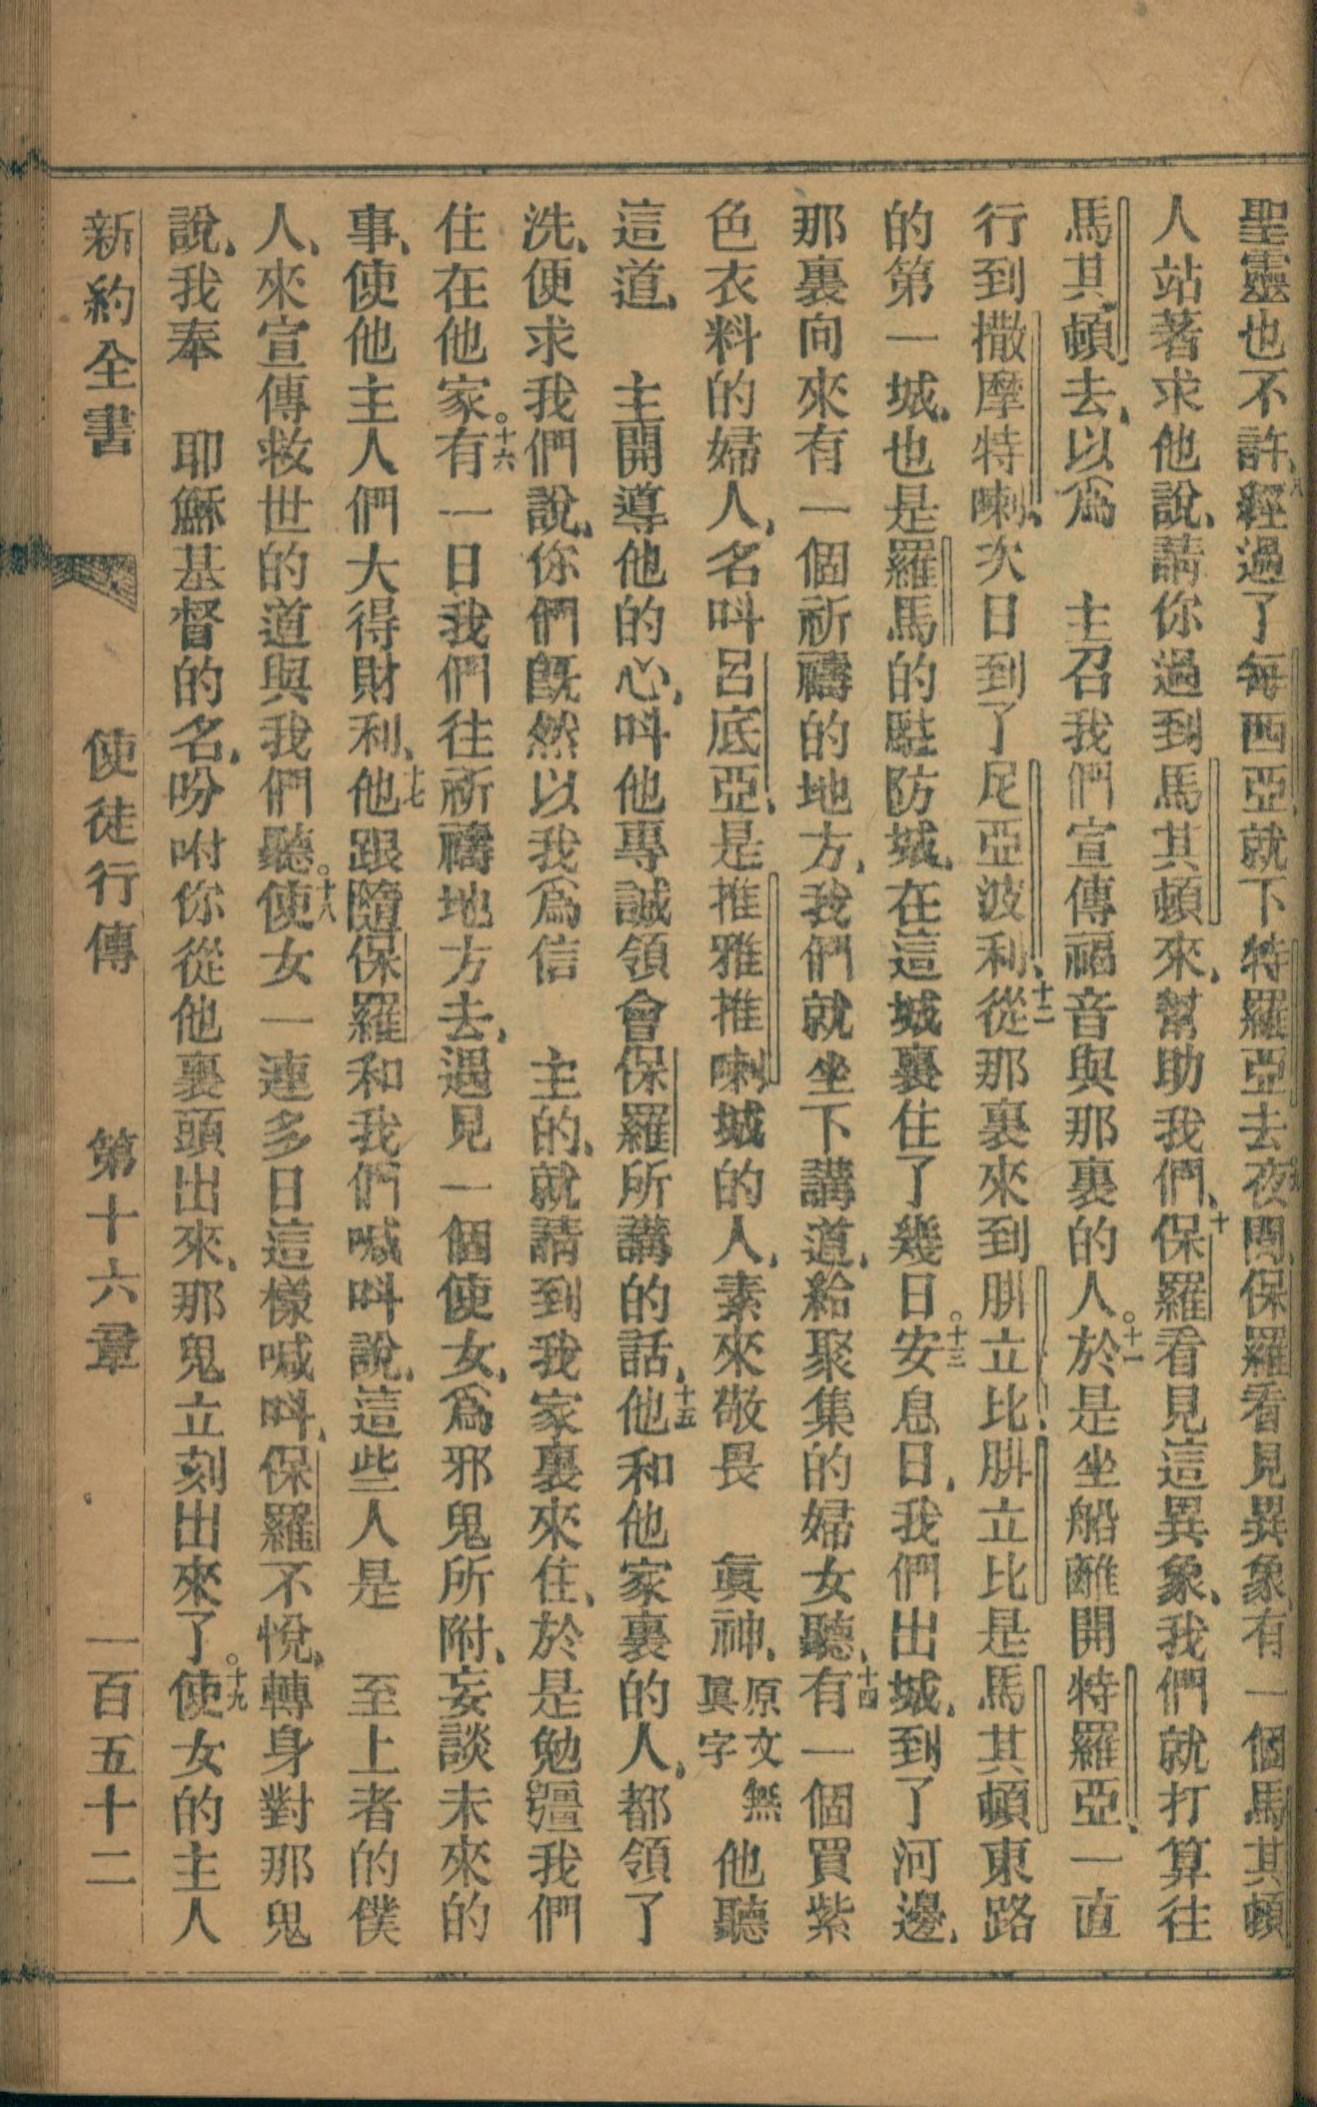 聖靈也不許、八經過了每西亞、就下特羅亞去。九夜間、保羅看見異象、有一個馬其頓
人站著求他說、請你過到馬其頓來、幫助我們、十保羅看見這異象、我們就打算往
馬其頓去、以爲　主召我們宣傳福音與那裏的人。十一於是坐船離開特羅亞、一直
行到撒摩特喇、次日到了尼亞波利、十二從那裏來到腓立比、腓立比是馬其頓東路
的第一城、也是羅馬的駐防城、在這城裏住了幾日。十三安息日、我們出城、到了河邊、
那裏向來有一個祈禱的地方、我們就坐下講道、給聚集的婦女聽、十四有一個買紫
色衣料的婦人、名呌呂底亞、是推雅推喇城的人、素來敬畏　眞神、原文無眞字他聽
這道、　主開導他的心、呌他專誠領會保羅所講的話、十五他和他家裏的人、都領了
洗、便求我們說、你們旣然以我爲信　主的、就請到我家裏來住、於是勉强我們
住在他家。十六有一日我們往祈禱地方去、遇見一個使女、爲邪鬼所附、妄談未來的
事、使他主人們大得財利、十七他跟隨保羅和我們喊呌說、這些人是　至上者的僕
人、來宣傳救世的道與我們聽。十八使女一連多日這樣喊呌、保羅不悅、轉身對那鬼
說、我奉　耶穌基督的名、吩咐你從他裏頭出來、那鬼立刻出來了。十九使女的主人
新約全書　使徒行傳　第十六章　一百五十二